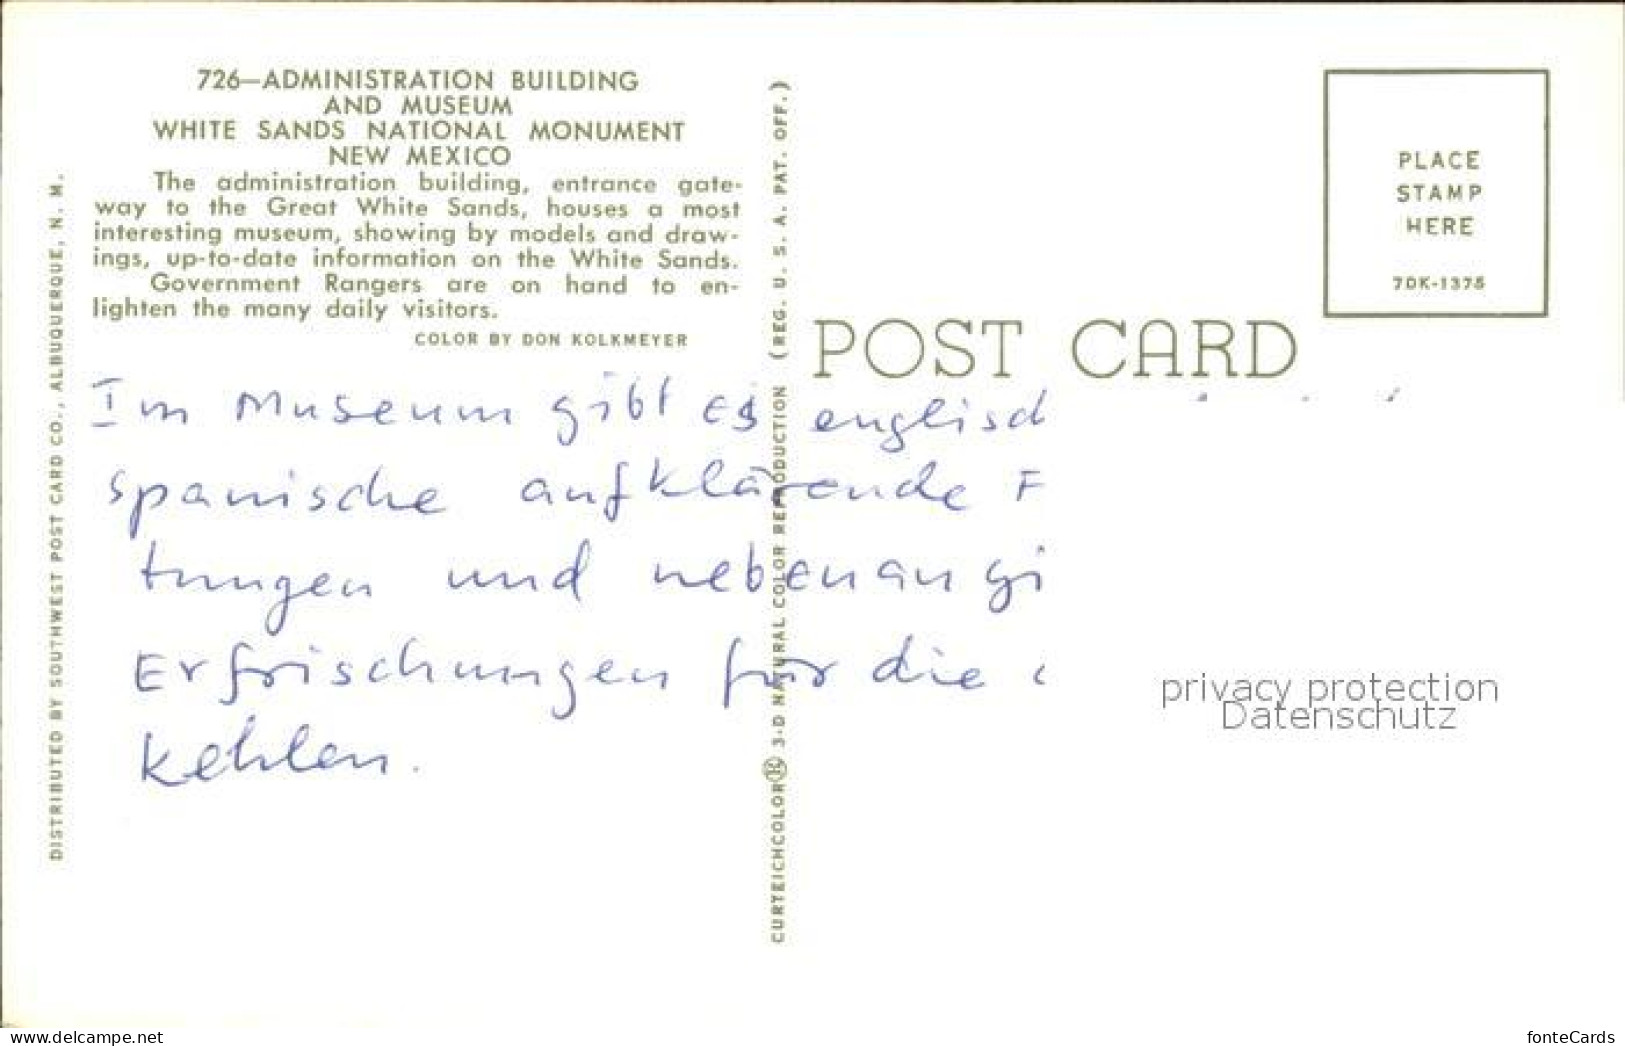 726—ADMINISTRATION BUILDING
AND MUSEUM
WHITE SANDS NATIONAL MONUMENT
NEW MEXICO
The administration building, entrance gate-
way to the Great White Sands, houses a most
interesting museum, showing by models and draw-
ings, up-to-date information on the White Sands.
Government Rangers are on hand to en-
lighten the many daily visitors.
COLOR BY DON KOLKMEYER
DISTRIBUTED BY SOUTHWEST POST CARD CO., ALBUQUERQUE, N. M.
CURTEICHCOLOR® 3-D NATURAL COLOR REPRODUCTION (REG. U. S. A. PAT. OFF.)
PLACE
STAMP
HERE
7DK-1375
POST CARD
Im Museum gibt es englisch
spanische aufklärende
tungen und nebenan gi
Erfrischungen für die
Kehlen.
privacy protection
Datenschutz
www.delcampe.net
fonteCards